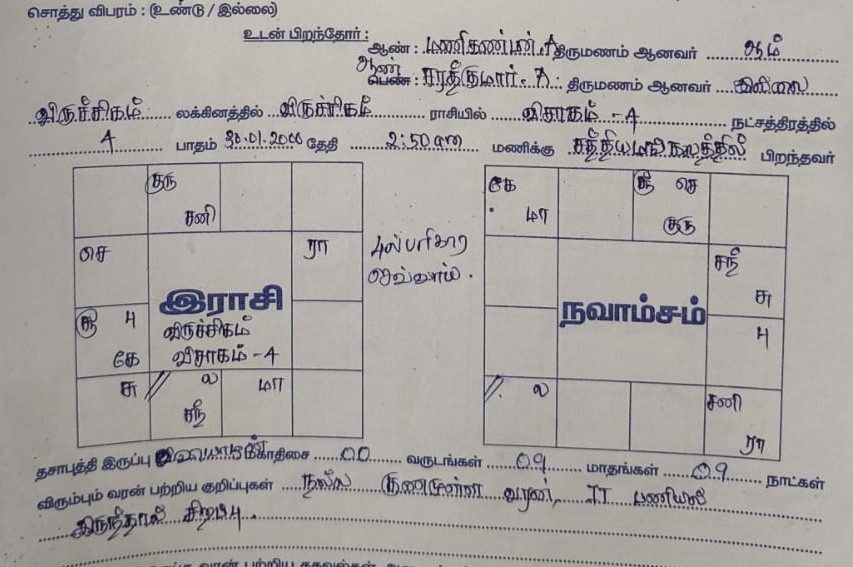 சொத்து விபரம் : (உண்டு / இல்லை)
உடன் பிறந்தோர் :
ஆண் : மணிகண்டன். A திருமணம் ஆனவர் ஆம்
ஆண்
பெண் : சரத்குமார். A : திருமணம் ஆனவர் இல்லை
விருச்சிகம் லக்கினத்தில் விருச்சிகம் ராசியில் விசாகம் - 4 நட்சத்திரத்தில்
4 பாதம் 30.01.2000 தேதி 2:50am மணிக்கு சத்தியமங்கலத்தில் பிறந்தவர்
குரு
சனி
செ
ரா
சூ பு
கே
சு
ல
சந்
மா
இராசி
விருச்சிகம்
விசாகம் - 4
பரிகார
செவ்வாய்.
கே
மா
சூ செ
குரு
சந்
சு
பு
ல
சனி
ரா
நவாம்சம்
தசாபுத்தி இருப்பு மகாதிசை 00 வருடங்கள் 09 மாதங்கள் 09 நாட்கள்
விரும்பும் வரன் பற்றிய குறிப்புகள் நல்ல குணமுள்ள வரன், IT பணியில்
இருந்தால் சிறப்பு.